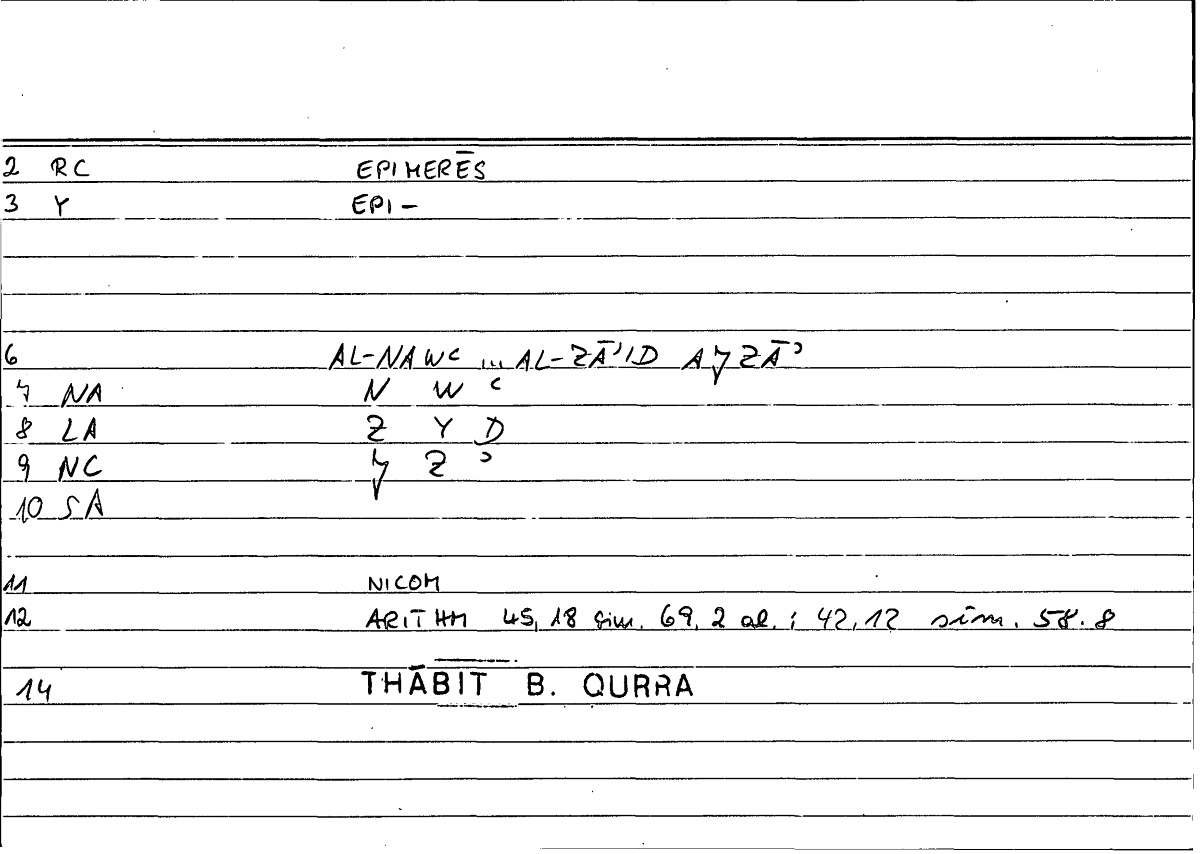 2 RC EPIMERĒS
3 Y EPI-
6 AL-NAWC ... AL-ZĀʾID AʒZĀʾ
7 NA N W ʿ
8 LA Z Y D
9 NC ʒ Z ʾ
10 SA
11 NICOM
12 ARITHM 45, 18 sim. 69, 2 al.; 42, 12 sim. 58.8
14 THĀBIT B. QURRA